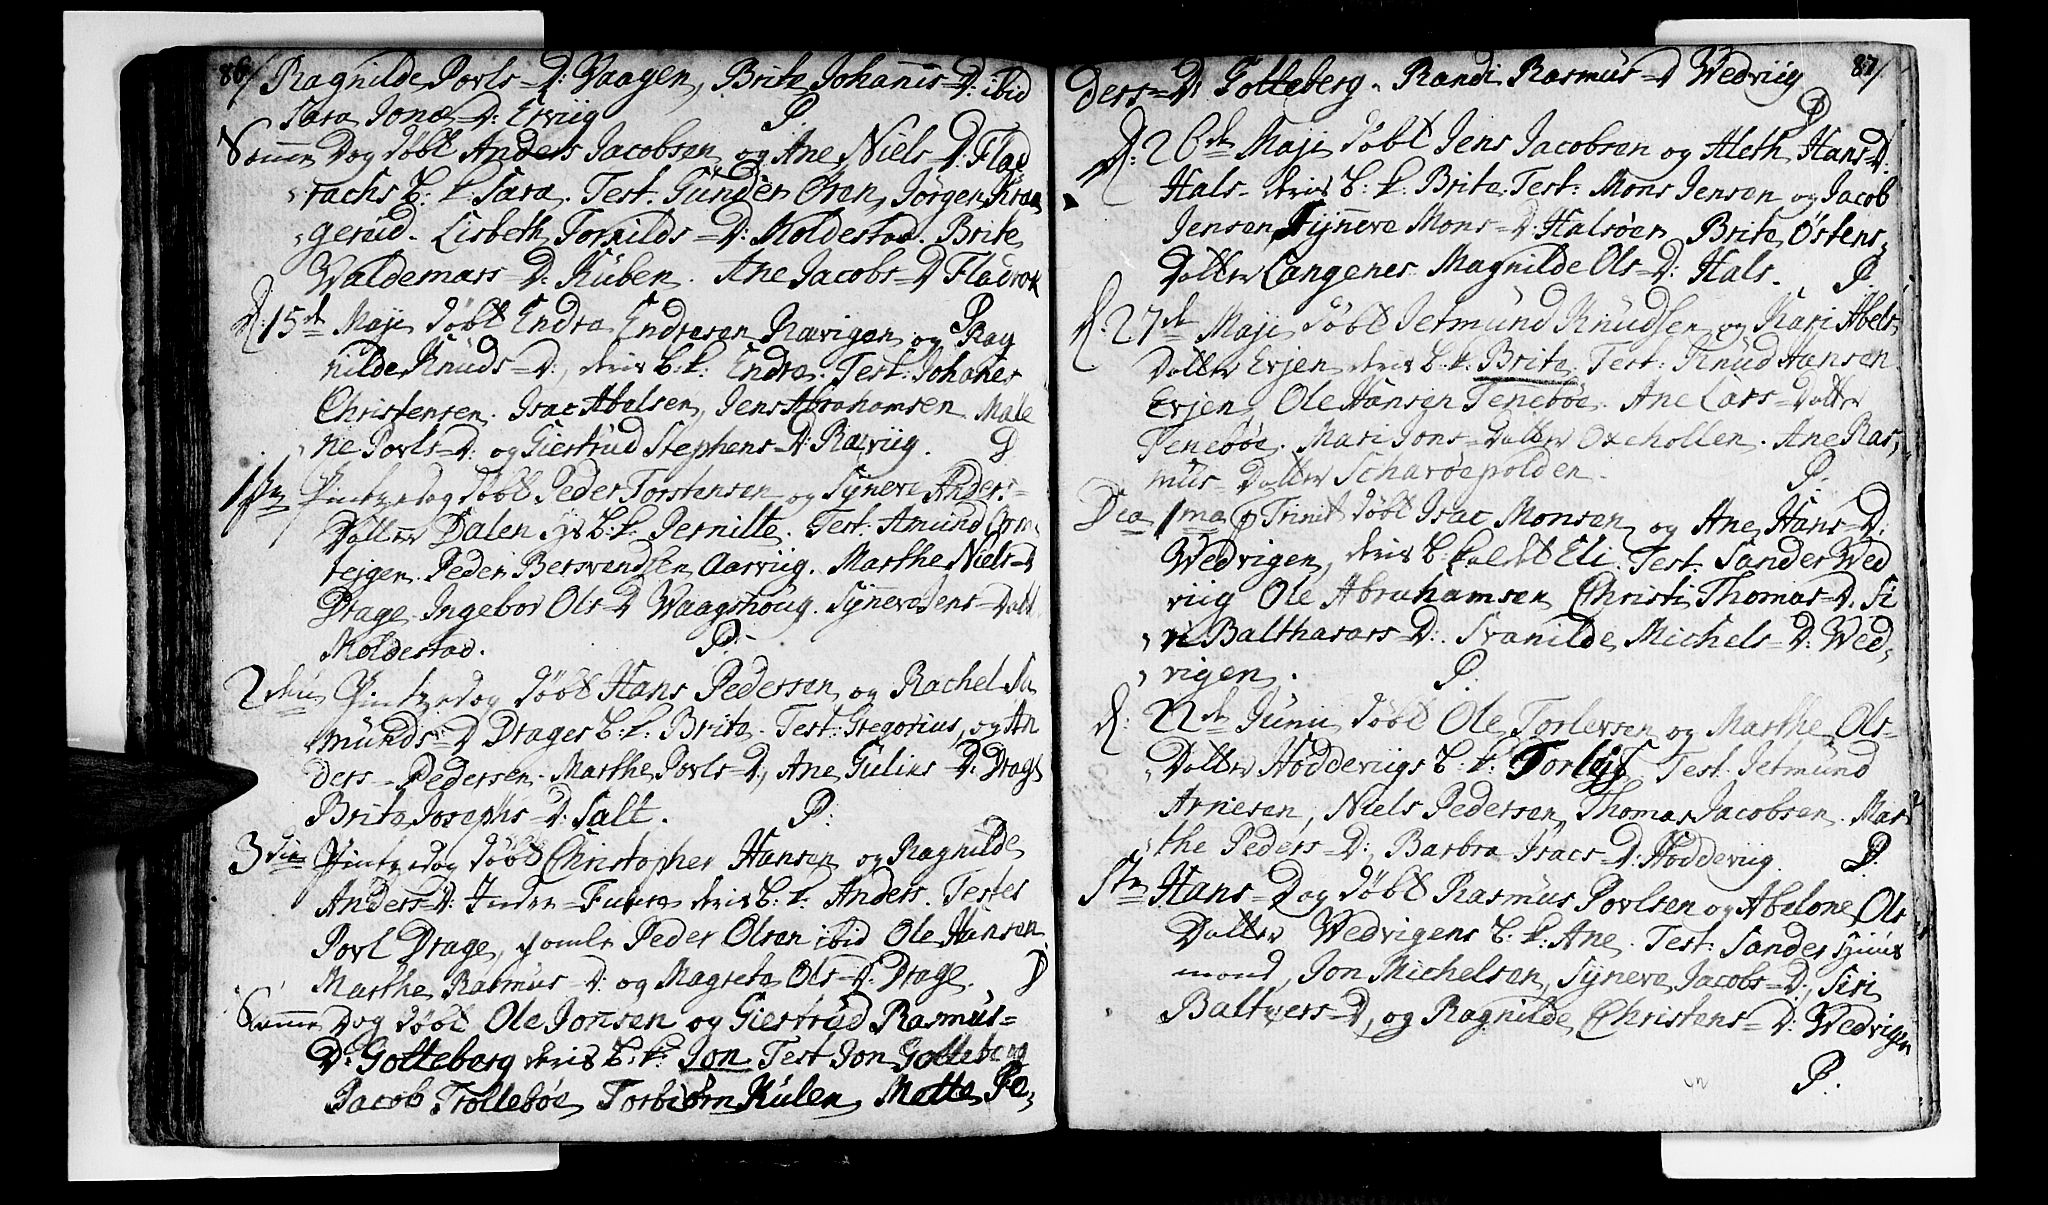 86/ Ragnilde Povls=D: Vaagen, Brite Johannis=D: ibid
Sara Jonæ=D: Erviig P
Samme Dag døbt Anders Jacobsen og Ane Niels=D: Flad
rachs B: k: Sara. Test. Gunder Øren, Jørgen Kraa
gerud. Lisbeth Tornilds=D: Moldestad. Brite
Waldemars=D: Kuben. Ane Jacobs=D Fladrak
D: 15de Maji døbt Endre Endresen Rævigen og Rag P
nilde Knuds=D:, deris B: k: Endre. Test: Johanes
Christensen. Isac Abelsen, Jens Abrahamsen Male
ne Povls=D: og Giertrud Stephens=D: Ræviig. P
1ste Pintzedag døbt Peder Torstensen og Syneve Anders=
Datter Dalen B: k: Pernille. Test: Amund
tejgen. Peder Bersvendsen Aarviig. Marthe Niels=D
Drage Ingebor Ols=D Waagshoug. Synneve Jens=Datt
Moldestad. P.
2den Pintzedag døbt Hans Pedersen og Rachel Sa
munds=D Drages B: k: Brite. Test: Gregorius, og An
ders=Pedersen. Marthe Povls=D:, Ane Gulius=D: Drage
Brite Josephs=D: Salt. P:
3die Pintzedag døbt Christopher Hansen og Ragnilde
Anders=D: Inden=Fure deris B: k: Anders. Testes
Povl Drage, Peder Olsen ibid Ole Hansen
Marthe Rasmus=D: og Magrete Ols=D: Drage. P
Samme Dag døbt Ole Jonsen og Giertrud Rasmus=
D: Gotteberg deris B: k: Jon Test Jon Gotteberg
Jacob Trollebøe Torbiørn Kulen Mette Pe=
87/
ders=D: Gotteberg. Randi Rasmus=D Wedviig P
D: 26de Maji døbt Jens Jacobsen og Aleth Hans=D:
Hals= deris B: k: Brite: Test: Mons Jensen og Jacob
Jensen, Synneve Mons=D: Halsøen Brite Østens=
Datter Langenes Magnilde Ols=D: Hals. P.
D: 27de Maji døbt Jetmund Knudsen og Kari Abels
Datter Erjen deris B: k: Brite. Test: Knud Hansen
Erjen, Ole Hansen Tenebøe. Ane Lars=Datter
Tenebøe. Mari Jons=Datter Oxehollen. Ane Ras=
mus=Datter Scharøepolden. P.
Dca 1ma p Trinit døbt Isac Monsen og Ane Hans=D:
Wedvigen, deris B: kaldt Eli. Test. Sander Wed
viig Ole Abrahamsen Christi Thomas=D. Si
ri Balthasars=D:. Svanilde Michels=D: Wed=
vigen. P.
D: 22de Junii døbt Ole Torlevsen og Marthe Ols=
Datter Hoddeviigs B: k: Torleif Test. Jetmund
Arnesen, Niels Pedersen, Thomas Jacobsen. Mar
the Peders=D:, Barbra Isacs=D: Hoddeviig. P.
Ste Hans=Dag døbt Rasmus Povlsen og Abelone Ols
Datter Wedvigens B: k: Ane. Test: Sander
mand, Jon Michelsen, Synneve Jacobs=D:, Siri
Baltzers=D, og Ragnilde Christens=D: Wedvigen
P.